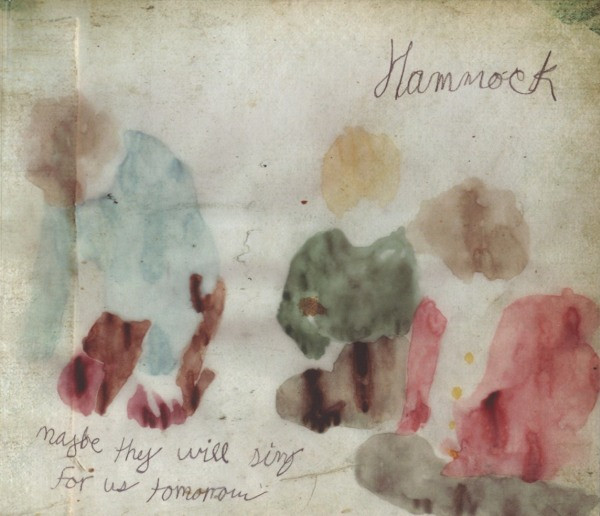 Hammock
maybe thy will sing
for us tomorrow